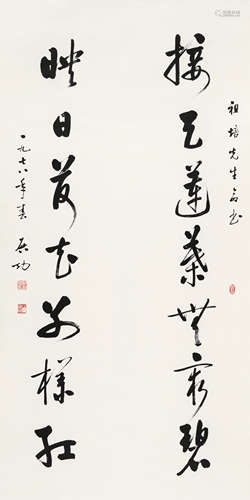 祖培先生宣书
接天莲叶无穷碧
映日荷花别样红
一九七八年春 启功